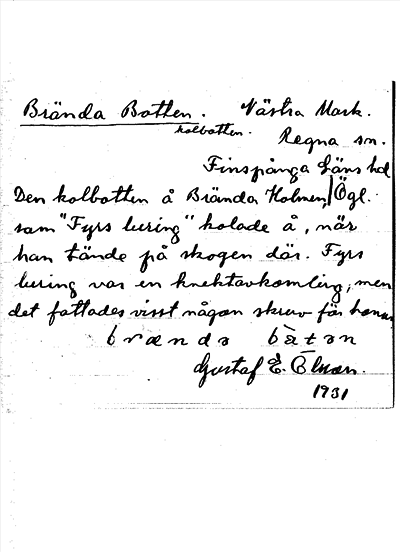 Brända Botten. Västra Mark.
kolbotten.
Regna sn.
Finspånga Läns hd
Den kolbotten å Brända Holmen, Ögl.
som "Fyrs luring" kolade å, när
han tände på skogen där. Fyrs
luring var en knektavkomling, men
det fattades visst någon skruv för honom.
brænda
Gustaf E.
1931